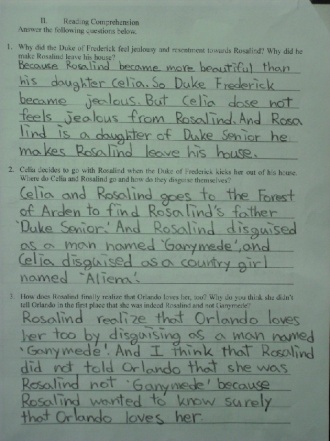 II. Reading Comprehension
Answer the following questions below.
1. Why did the Duke of Frederick feel jealousy and resentment towards Rosalind? Why did he
make Rosalind leave his house?
Because Rosalind became more beautiful than
his daughter Celia. So Duke Frederick
became jealous. But Celia dose not
feels jealous from Rosalind. And Rosa
lind is a daughter of Duke Senior he
makes Rosalind leave his house.
2. Celia decides to go with Rosalind when the Duke of Frederick kicks her out of his house.
Where do Celia and Rosalind go and how do they disguise themselves?
Celia and Rosalind goes to the Forest
of Arden to find Rosalind's father
'Duke Senior.' And Rosalind disguised
as a man named 'Ganymede', and
Celia disguised as a country girl
named 'Aliena'.
3. How does Rosalind finally realize that Orlando loves her, too? Why do you think she didn't
tell Orlando in the first place that she was indeed Rosalind and not Ganymede?
Rosalind realize that Orlando loves
her too by disguising as a man named
'Ganymede'. And I think that Rosalind
did not told Orlando that she was
Rosalind not 'Ganymede' because
Rosalind wanted to know surely
that Orlando loves her.